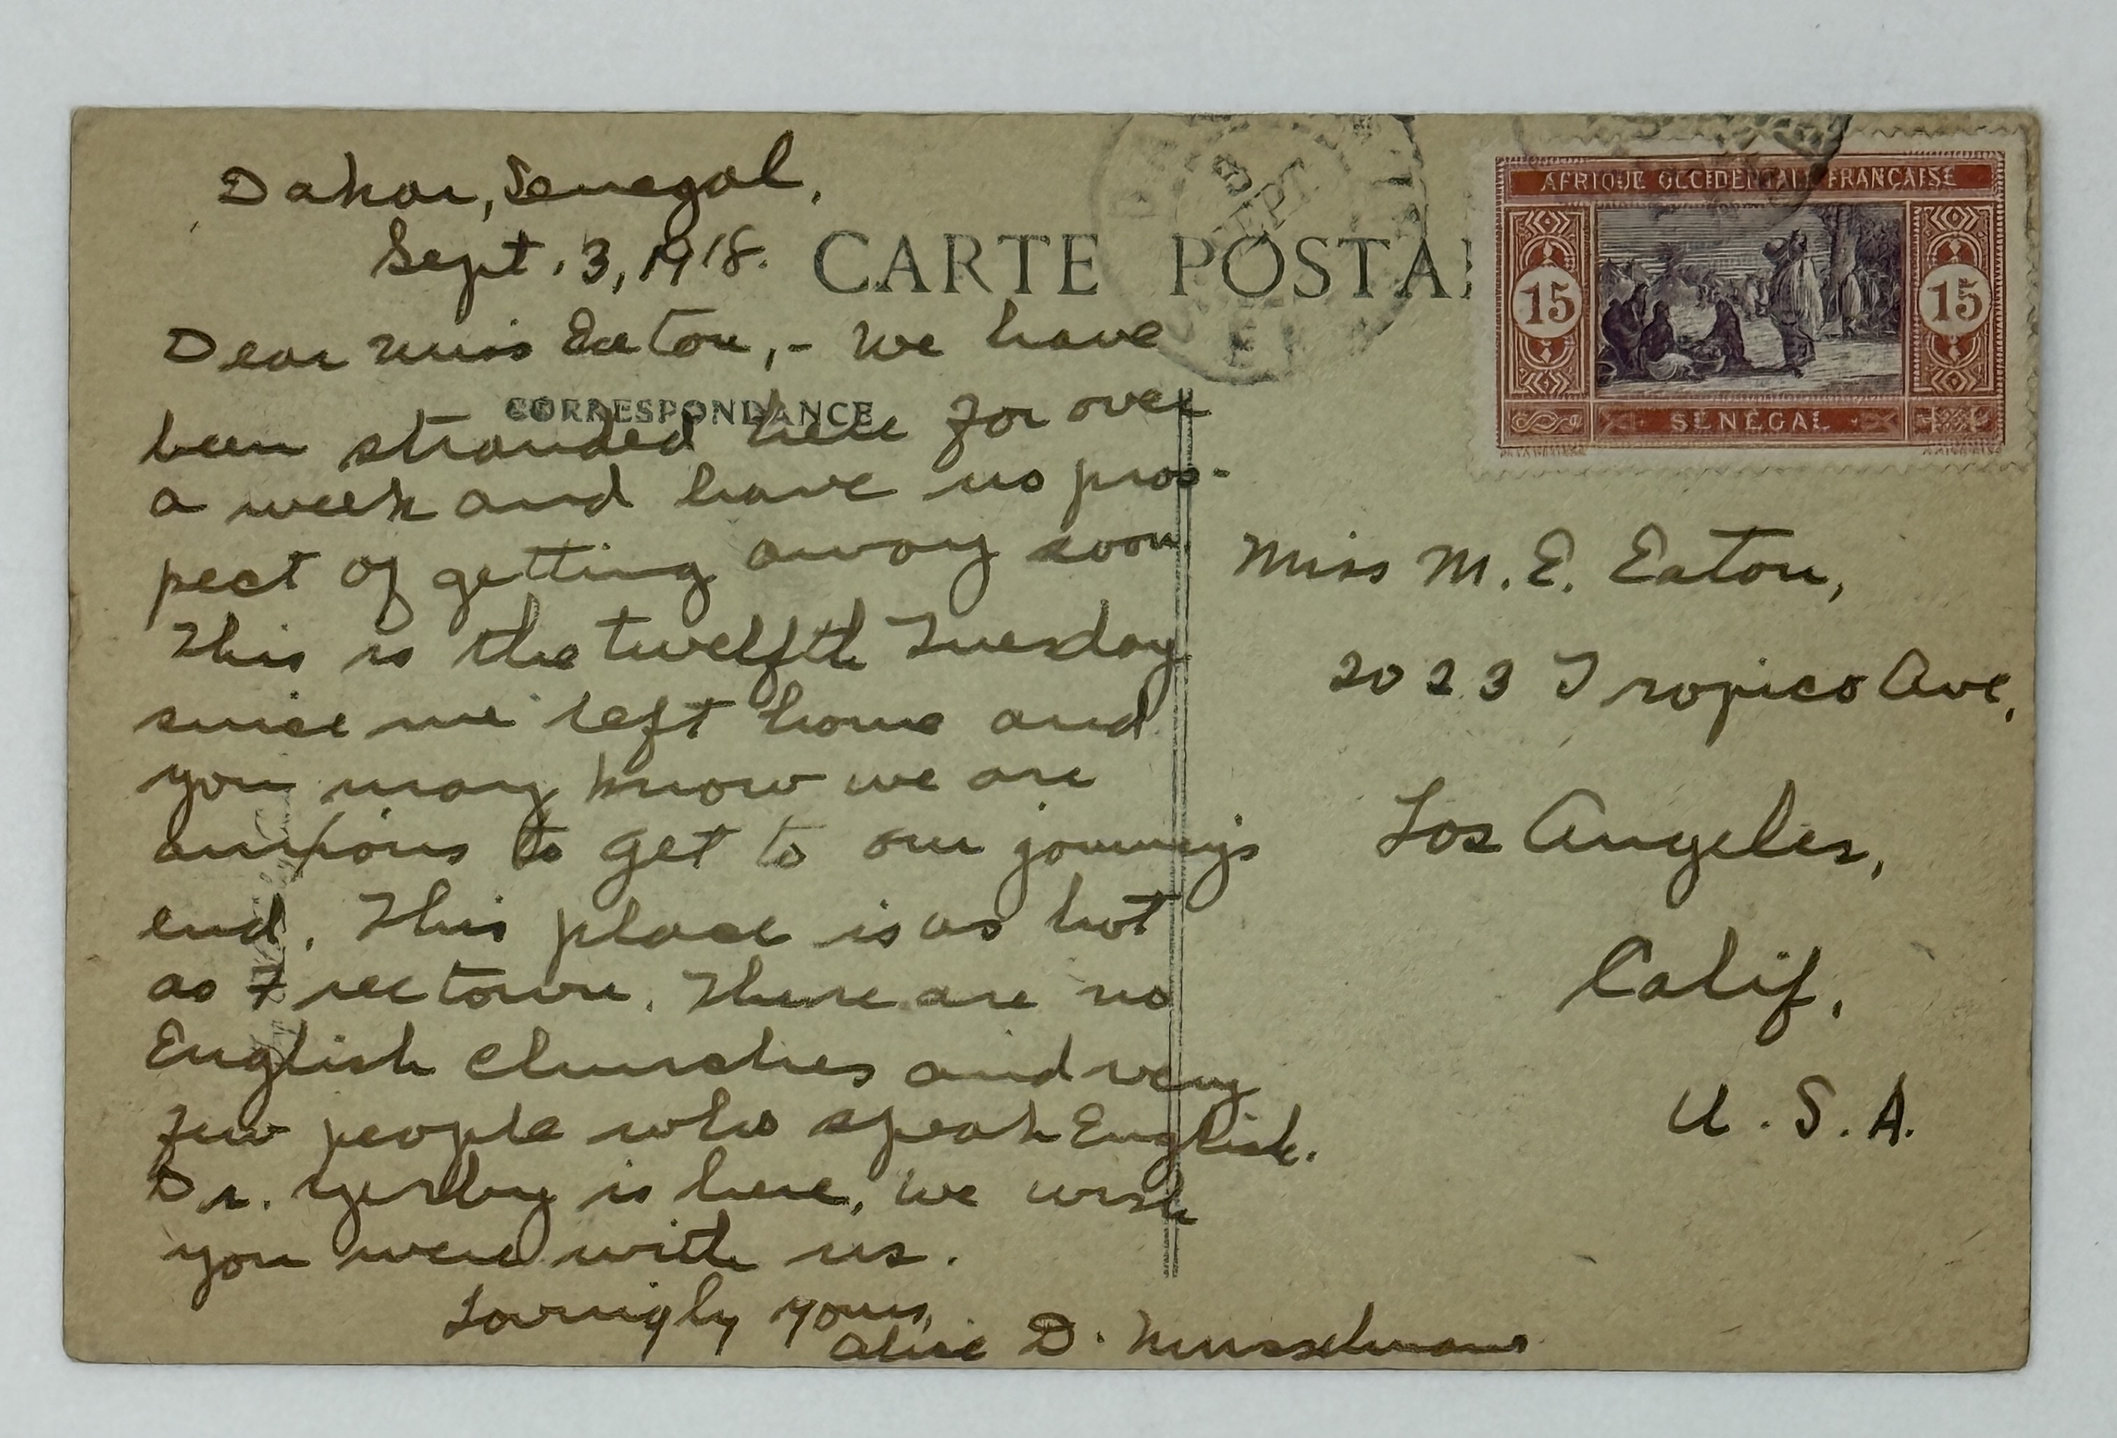 Dakar, Senegal.
Sept. 3, 1918.
CARTE POSTA
Dear Miss Eaton,- We have
CORRESPONDANCE
been stranded here for over
a week and have no pros-
pect of getting away soon.
This is the twelfth Tuesday
since we left home and
you may know we are
anxious to get to our journey's
end. This place is as hot
as Freetown. There are no
English churches and very
few people who speak English.
Dr. Yerby is here. We wish
you were with us.
Lovingly yours,
Alice D. Musselman
SEPT
AFRIQUE OCCIDENTALE FRANÇAISE
15 15
SENEGAL
Miss M. E. Eaton,
2023 Tropico Ave,
Los Angeles,
Calif.
U.S.A.